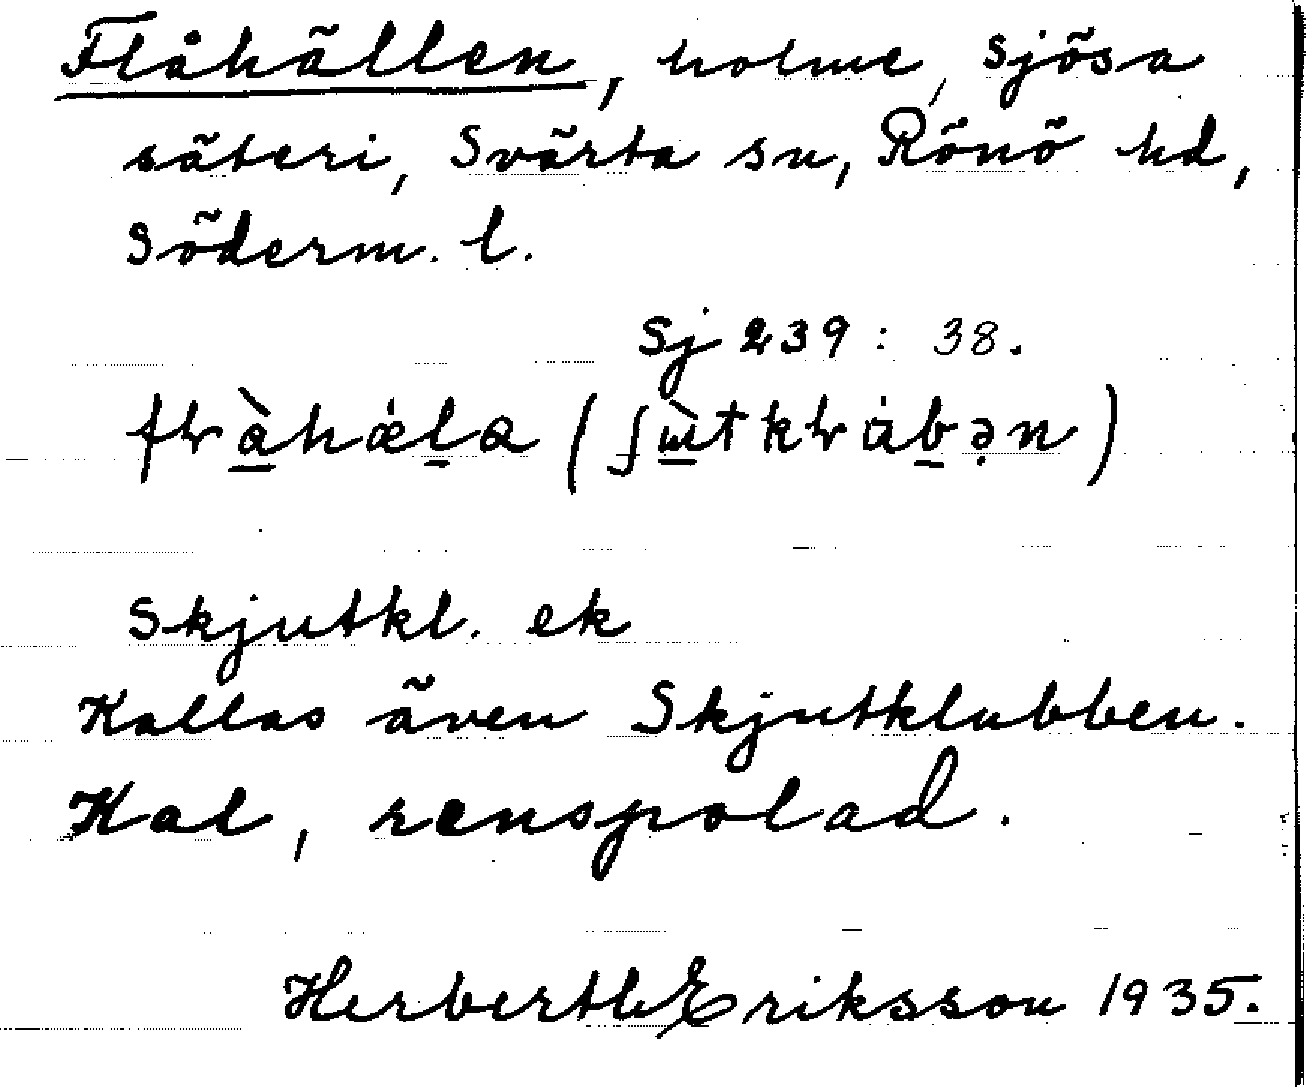 Flåhällen, holme, Sjösa
säteri, Svärta sn, Rönö hd,
Söderm. l.
Sj 239 : 38.
Skjutkl. ek
Kallas även Skjutklubben.
Kal, renspolad.
Herberth Eriksson 1935.